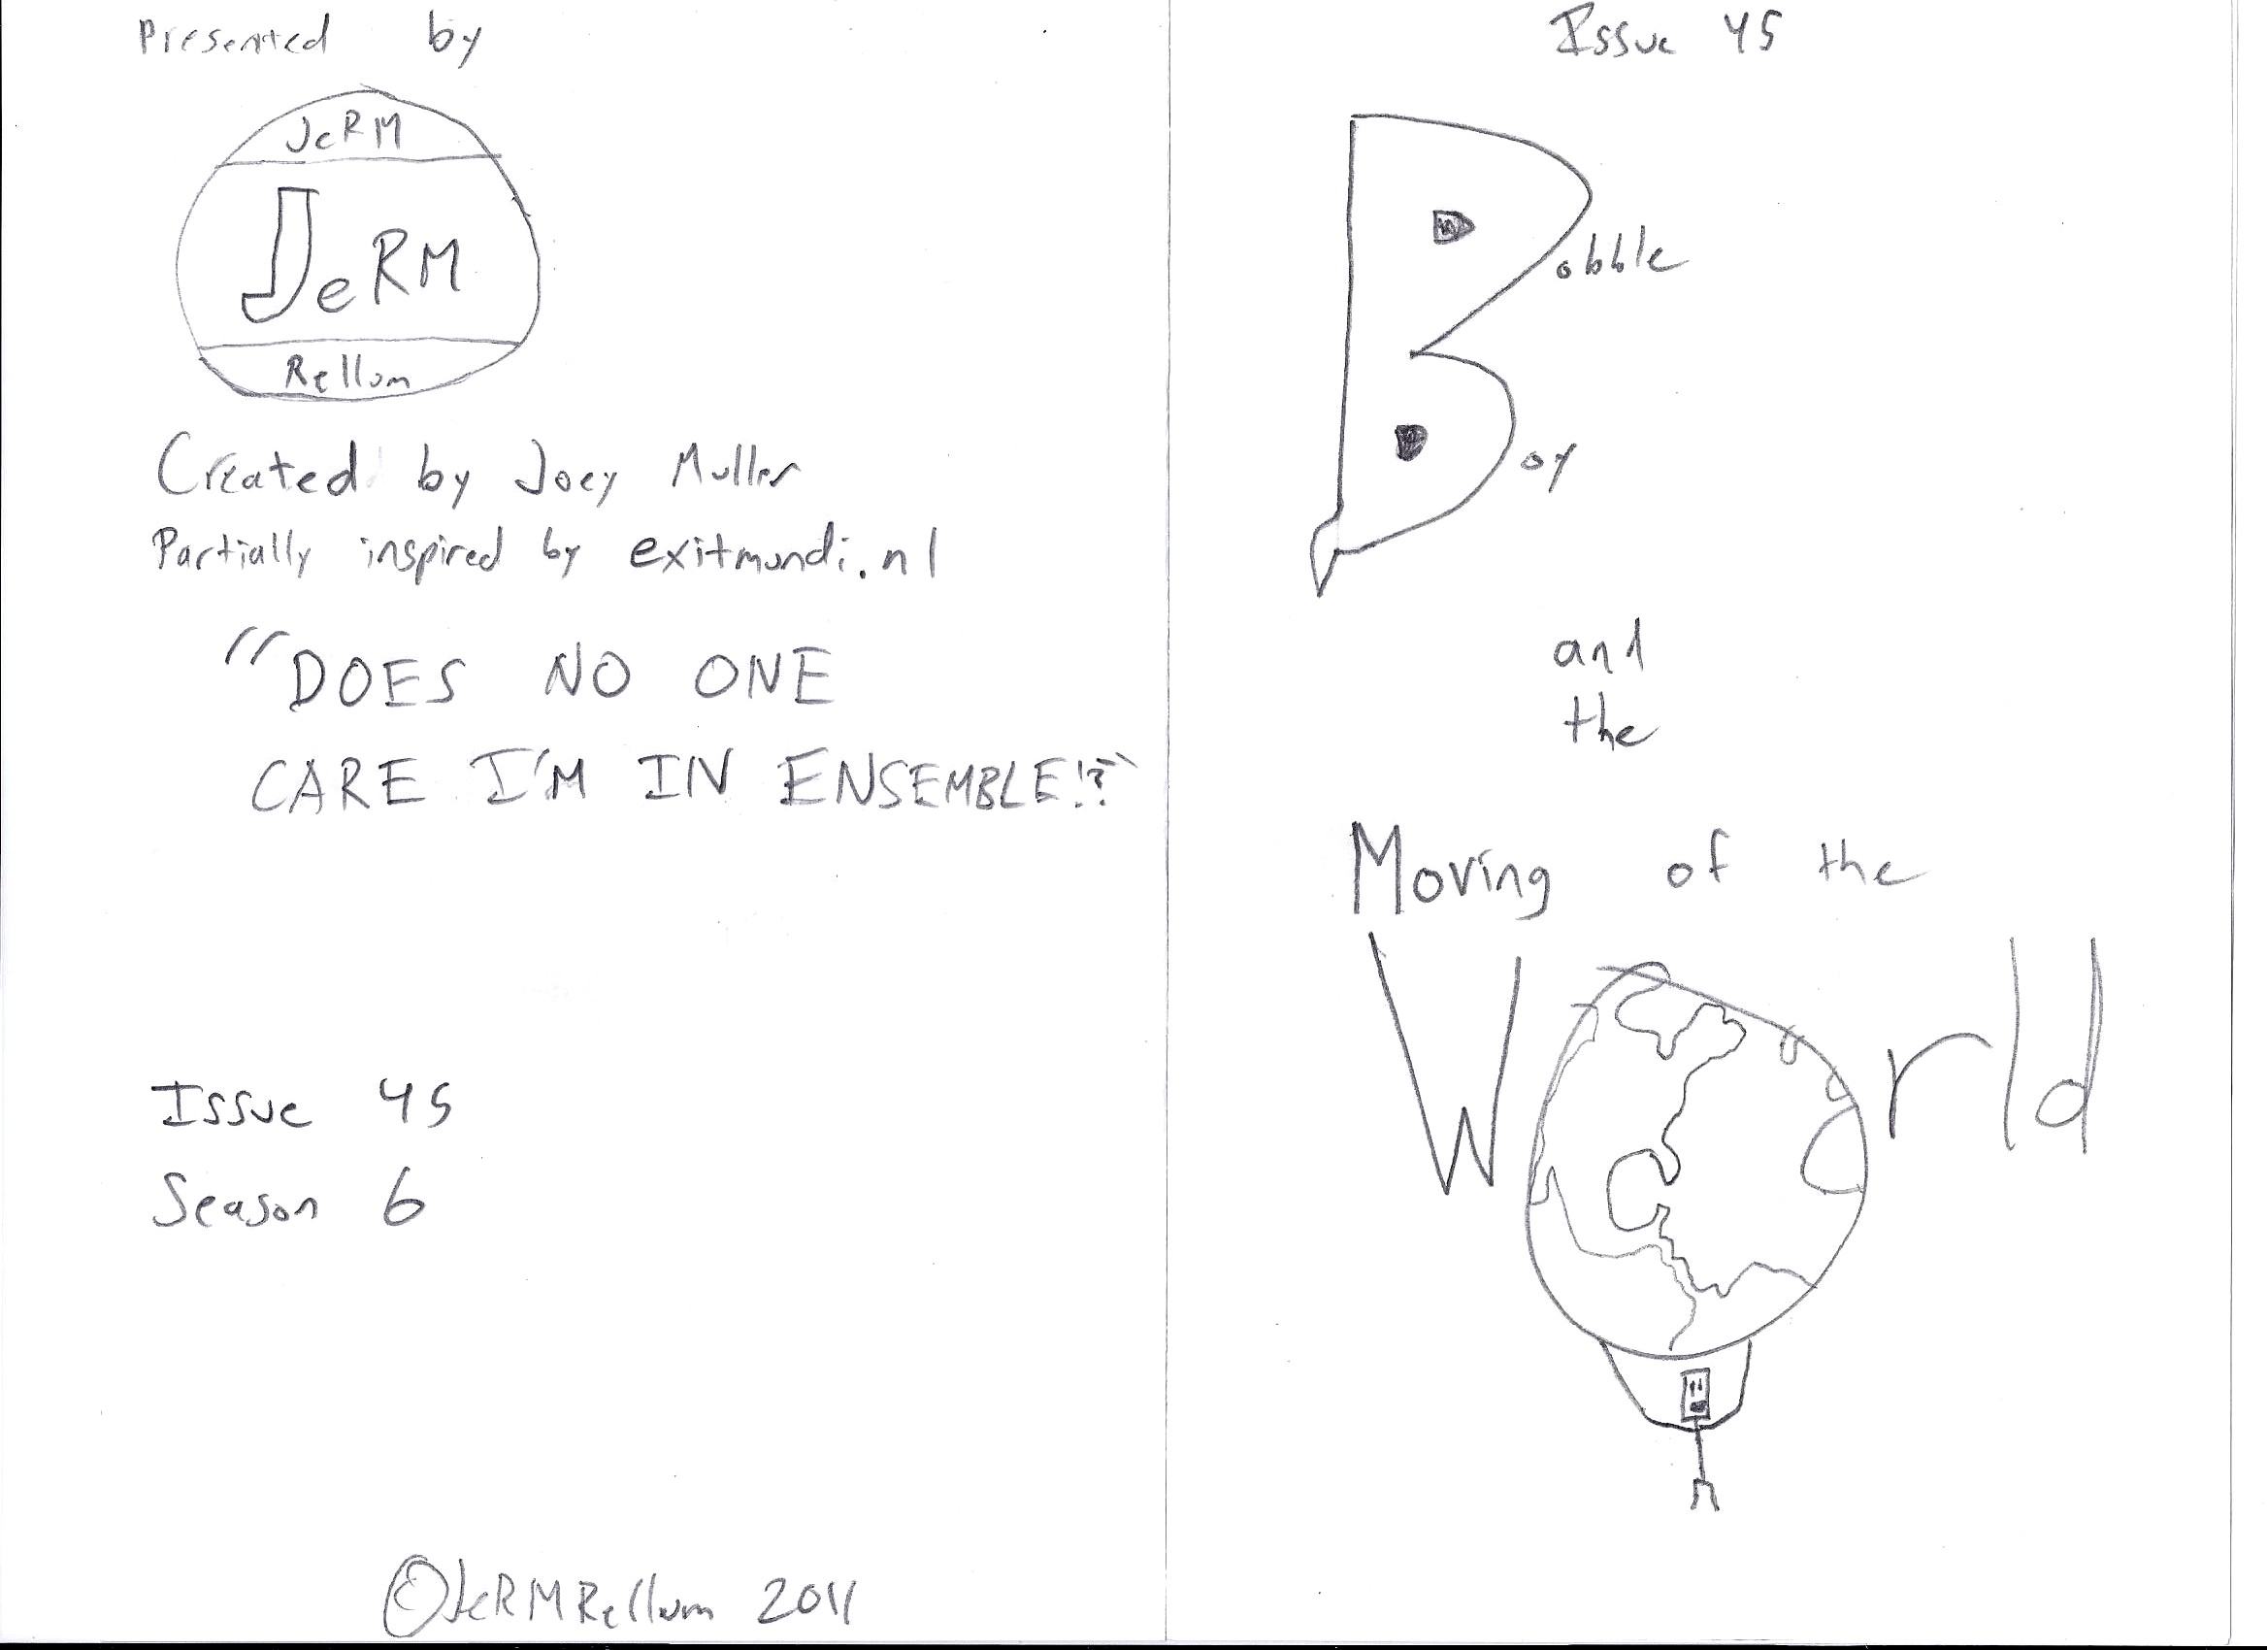 Presented by
JeRM
JeRM
Rellum
Created by Joey Muller
Partially inspired by exitmundi.nl
"DOES NO ONE
CARE I'M IN ENSEMBLE!?"
Issue 45
Season 6
©JeRMRellum 2011
Issue 45
Bobble
Boy
and
the
Moving of the
World